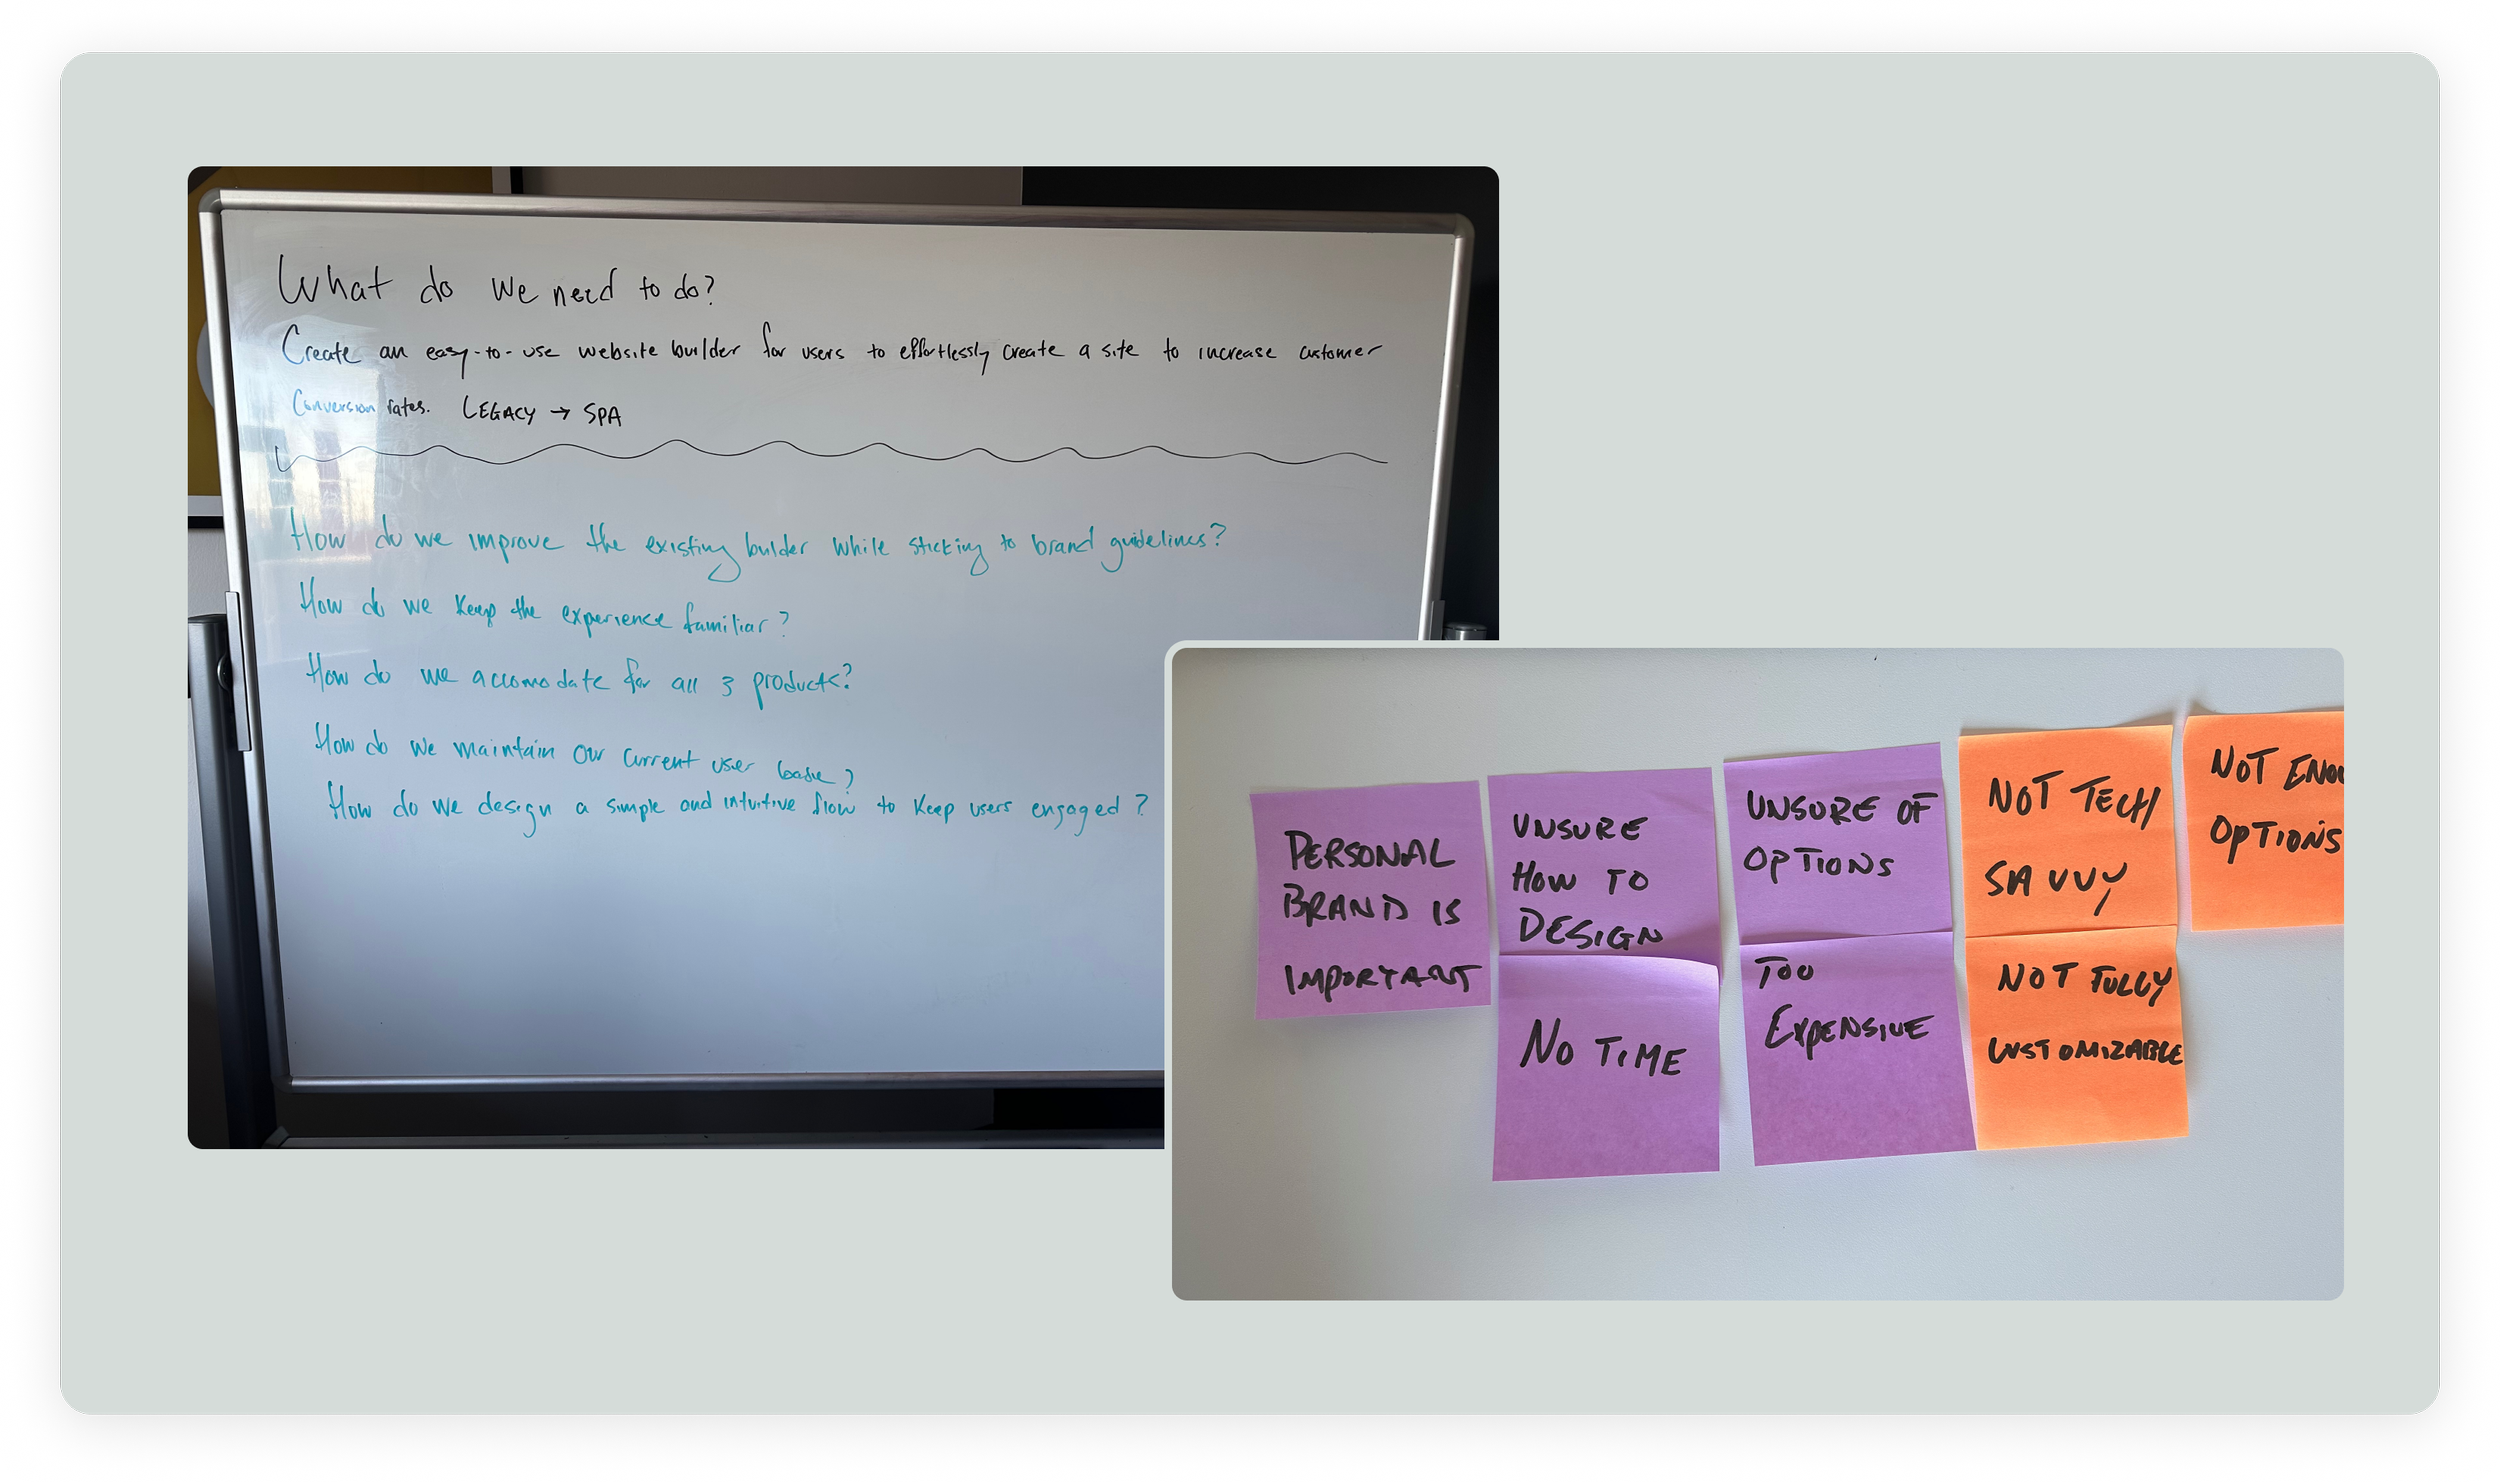 What do we need to do?
Create an easy-to-use website builder for users to effortlessly create a site to increase customer
Conversion rates. LEGACY → SPA
How do we improve the existing builder while sticking to brand guidelines?
How do we keep the experience familiar?
How do we accomodate for all 3 products?
How do we maintain our current user base?
How do we design a simple and intuitive flow to keep users engaged?
PERSONAL
BRAND IS
IMPORTANT
UNSURE
HOW TO
DESIGN
NO TIME
UNSURE OF
OPTIONS
TOO
EXPENSIVE
NOT TECH
SAVVY
NOT FULLY
CUSTOMIZABLE
NOT ENOU
OPTIONS